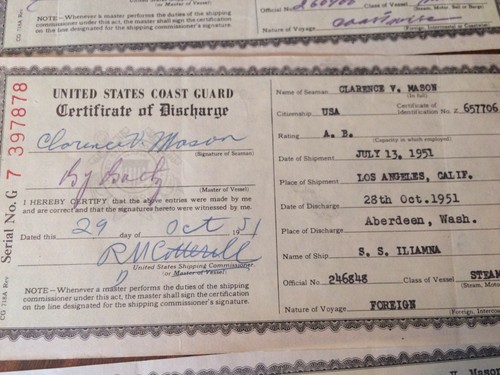 NOTE—Whenever a master performs the duties of the shipping
commissioner under this act, the master shall sign the certification
on the line designated for the shipping commissioner's signature.
CG 718A Rev
(or Master of Vessel)
Official No.
Class of Vessel
(Steam, Motor, Sail or Barge)
Nature of Voyage
UNITED STATES COAST GUARD
Certificate of Discharge
Clarence V. Mason
(Signature of Seaman)
(Master of Vessel)
I HEREBY CERTIFY that the above entries were made by me
and are correct and that the signatures hereto were witnessed by me.
Dated this 29 day of Oct 1951
R M Cotterill
United States Shipping Commissioner
(or Master of Vessel)
NOTE—Whenever a master performs the duties of the shipping
commissioner under this act, the master shall sign the certification
on the line designated for the shipping commissioner's signature.
Serial No. G 7 397878
CG 718A Rev
Name of Seaman CLARENCE V. MASON
(In full)
Citizenship USA Certificate of Identification No. Z 657706
Rating A. B.
(Capacity in which employed)
Date of Shipment JULY 13, 1951
Place of Shipment LOS ANGELES, CALIF.
Date of Discharge 28th Oct. 1951
Place of Discharge Aberdeen, Wash.
Name of Ship S. S. ILIAMNA
Official No. 246848 Class of Vessel STEAM
(Steam, Motor
Nature of Voyage FOREIGN
(Foreign, Intercoa
V. Mason